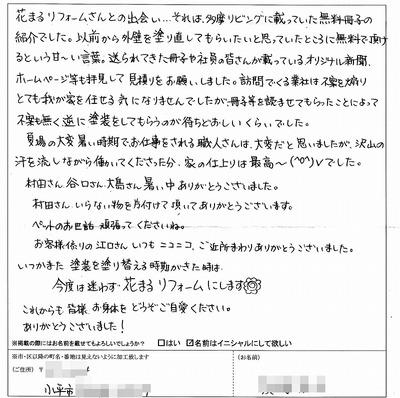 花まるリフォームさんとの出会い…それは、多摩リビングに載っていた無料冊子の
紹介でした。以前から外壁を塗り直してもらいたいと思っていたところに無料で頂け
るという甘～い言葉。送られてきた冊子や社員の皆さんが載っているオリジナル新聞、
ホームページ等も拝見して見積りをお願いしました。訪問でくる業社は不安を煽り
とても我が家を任せる気になりませんでしたが、冊子等を読ませてもらったことによって
不安も無く逆に塗装をしてもらうのが待ちどおしいくらいでした。
夏場の大変暑い時期でお仕事をされる職人さんは、大変だと思いましたが、沢山の
汗を流しながら働いてくださった分、家の仕上りは最高～(^o^)vでした。
村田さん、谷口さん、大島さん、暑い中ありがとうございました。
村田さん、いらない物を片付けて頂いてありがとうございます。
ペットのお世話頑張ってくださいね。
お客様係りの江口さんいつもニコニコ、ご近所まわりありがとうございました。
いつかまた塗装を塗り替える時期がきた時は
今度は迷わず花まるリフォームにします
これからも皆様お身体をどうぞご自愛ください。
ありがとうございました！
※掲載の際にはお名前を載せてもよろしいでしょうか？ □はい ☑名前はイニシャルにして欲しい
※市・区以降の町名・番地は見えないように加工致します
（ご住所）〒
（お名前）
小平市